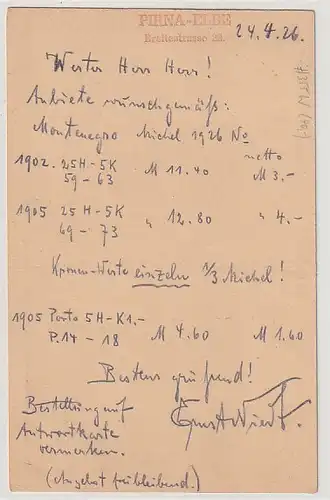 PIRNA-ELBE
Breitestrasse 28.
24.4.26.
Werter Herr Herr!
Anbiete wunschgemäß:
Montenegro Michel 1926 No
netto
1902. 25H-5K M 11.40 M 3.-
59 - 63
1905 25H-5K " 12.80 " 4.-
69 - 73
Kronen-Werte einzeln 1/3 Michel!
1905 Porto 5H-K1.-
P.14 - 18 M 4.60 M 1.60
Bestens grüßend!
Bestellung auf
Antwortkarte
vermerken.
(Angebot freibleibend.)